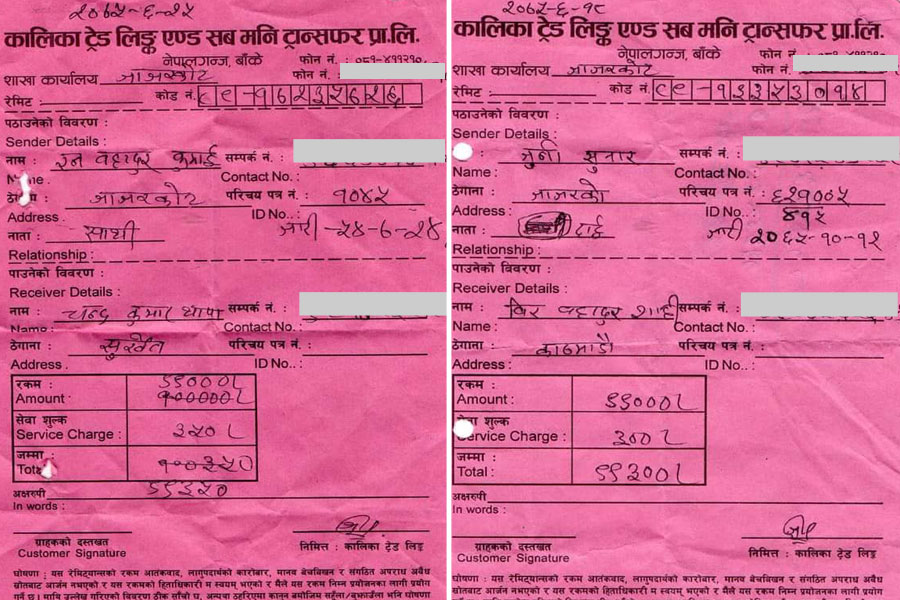 २०६५-६-२५
कालिका ट्रेड लिङ्क एण्ड सब मनि ट्रान्सफर प्रा.लि.
नेपालगन्ज, बाँके फोन नं. : ०८१-४११२१०
शाखा कार्यालय जाजरकोट फोन नं. :
रेमिट : कोड नं. ९९-१६२३५६२६
पठाउनेको विवरण :
Sender Details :
नाम : वहादुर सम्पर्क नं. :
Name : Contact No.:
ठेगाना : जाजरकोट परिचय पत्र नं. : १०४५
Address : ID No.. :
नाता : साथी जारी -५४-6-२४
Relationship :
पाउनेको विवरण :
Receiver Details :
नाम : चन्द्र कुमार थापा सम्पर्क नं. :
Name : Contact No. :
ठेगाना : सुर्खेत परिचय पत्र नं. :
Address : ID No. :
रकम : ९९०००।
Amount : १०००००।
सेवा शुल्क
Service Charge : ३५०।
जम्मा :
Total : १००३५०
अक्षरुपी ९९३५०
In words :
ग्राहकको दस्तखत निमित्त : कालिका ट्रेड लिङ्क
Customer Signature
घोषणा : यस रेमिट्यान्सको रकम आतंकवाद, लागुपदार्थको कारोबार, मानव बेचबिखन र संगठित अपराध अवैध
स्रोतबाट आर्जन नभएको र यस रकमको हिताधिकारी म स्वयम् भएको र मैले यस रकम निम्न प्रयोजनका लागी प्रयोग
२०६५-६-१८
कालिका ट्रेड लिङ्क एण्ड सब मनि ट्रान्सफर प्रा.लि.
नेपालगन्ज, बाँके फोन नं. : ०८१-४११२१०
शाखा कार्यालय जाजरकोट फोन नं. :
रेमिट : कोड नं. ९९-१३३५३०१४
पठाउनेको विवरण :
Sender Details :
सुनार सम्पर्क नं. :
Name : Contact No. :
ठेगाना : जाजरको परिचय पत्र नं. : ६२१००५
Address : ID No.. : ४१५
नाता : दाई जारी २०६५-१०-१२
Relationship :
पाउनेको विवरण :
Receiver Details :
नाम : विर वहादुर शाही सम्पर्क नं. :
Name : Contact No. :
ठेगाना : काठमाडौ परिचय पत्र नं. :
Address : ID No. :
रकम :
Amount : ९९०००।
सेवा शुल्क
Service Charge : ३००।
जम्मा :
Total : ९९३००।
अक्षरुपी
In words :
ग्राहकको दस्तखत निमित्त : कालिका ट्रेड लिङ्क
Customer Signature
घोषणा : यस रेमिट्यान्सको रकम आतंकवाद, लागुपदार्थको कारोबार, मानव बेचबिखन र संगठित अपराध अवैध
स्रोतबाट आर्जन नभएको र यस रकमको हिताधिकारी म स्वयम् भएको र मैले यस रकम निम्न प्रयोजनका लागी प्रयोग